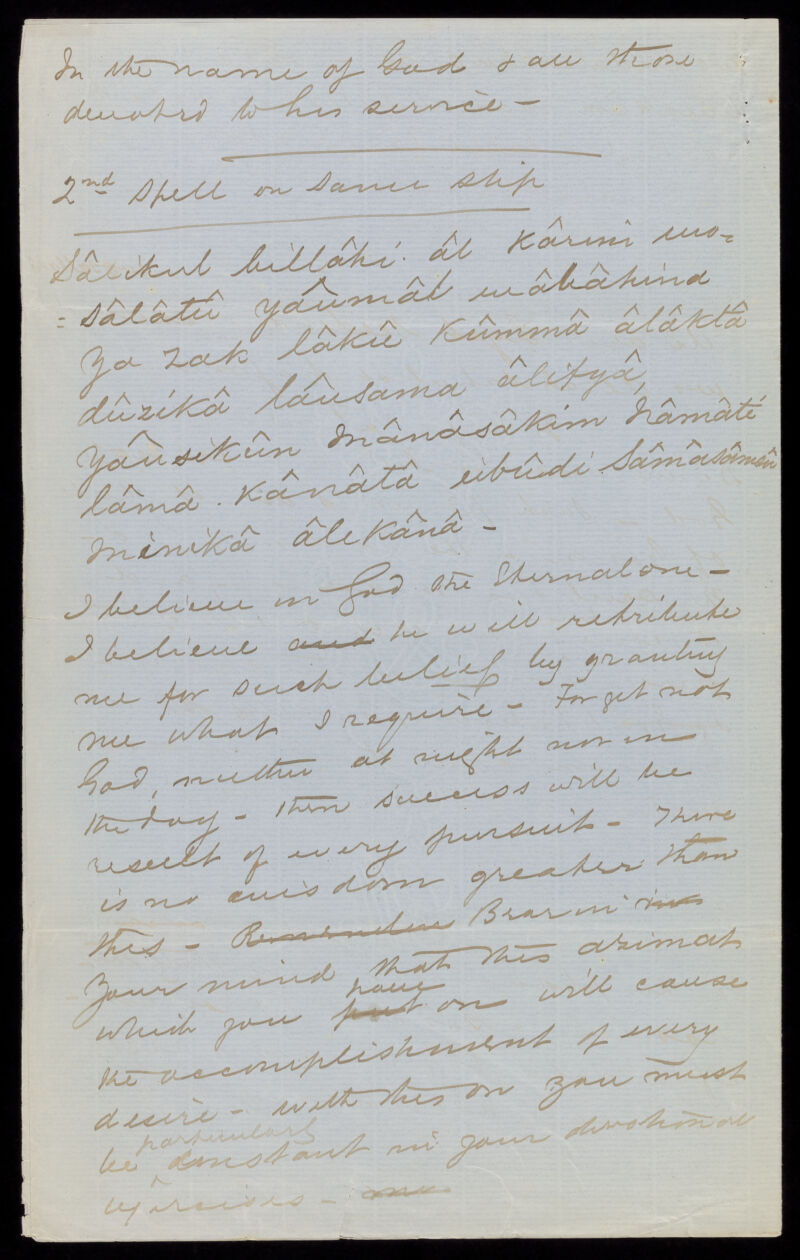 In the name of God & all those
devoted to his service -
2nd Spell on same slip
Sâlikul billâhi âl Kârim wo=
= sâlâtû yâûmâl wâbâhina
Ya Zak lâkû Kûmmâ âlâktâ
dûzikâ lâusama âlifyâ,
yâûsikûn mânâsâkim nâmâté
lâmâ . Kânâtâ eibûdi Sâmâsâmâû
minikâ âlekânâ -
I believe in God the Eternal one -
I believe and he will retribute
me for such belief by granting
me what I require - Forget not
God, neither at night nor in
the day - then success will be
result of every pursuit - There
is no wisdom greater than
this - Remember Bear in in
your mind that this azimat
which you put have on will cause
the accomplishment of every
desire - with this on you must
be particularly constant in your devotional
exercises -